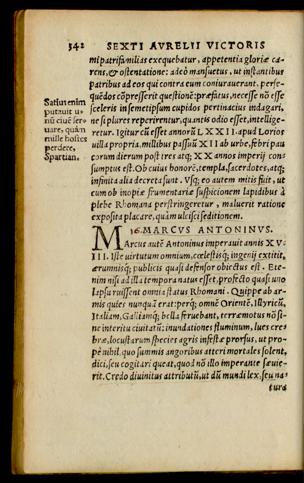 342 SEXTI AVRELII VICTORIS
mi patrifamilias exequebatur, appetentia gloriæ ca-
rens, & ostentatione: adeò mansuetus, ut instantibus
patribus ad eos qui contra eum coniurauerant. perse-
quēdos cōpresserit questionē: præfatus, necesse nō esse
sceleris in semetipsum cupidos pertinacius indagari,
ne si plures reperirentur, quantis odio esset, intellige-
retur. Igitur cū esset annorū LXXII. apud Lorios
uilla propria. millibus passuū XII ab urbe, febri pau
corum dierum post tres atq; XX annos imperij con
sumptus est. Ob cuius honorē, templa, sacerdotes, atq;
infinita alia decreta sunt. Vsq; eo autem mitis fuit, ut
cum ob inopiæ frumentariæ suspicionem lapidibus à
plebe Rhomana perstringeretur, maluerit ratione
exposita placare, quàm ulcisci seditionem.
Satius enim
putauit u-
nū ciuē ser-
uare, quàm
mille hostes
perdere,
Spartian.
16. MARCVS ANTONINVS.
Marcus autē Antoninus imperauit annis XV-
III. Iste uirtutum omnium, cœlestisq; ingenij extitit,
ærumnisq; publicis quasi defensor obiectus est. Ete-
nim nisi ad illa tempora natus esset, profectò quasi uno
lapsu ruissent omnia status Rhomani. Quippe ab ar-
mis quies nunquā erat: perq; omnē Orientē, Illyricū,
Italiam, Galliamq; bella feruebant, terræmotus nō si-
ne interitu ciuitatū: inundationes fluminum, lues cre-
bræ, locustarum species agris infestæ prorsus, ut pro-
pè nihil. quo summis angoribus atteri mortales solent,
dici, seu cogitari queat, quod nō illo imperante sæuie-
rit. Credo diuinitus attributū, ut dū mundi lex, seu na-
tura